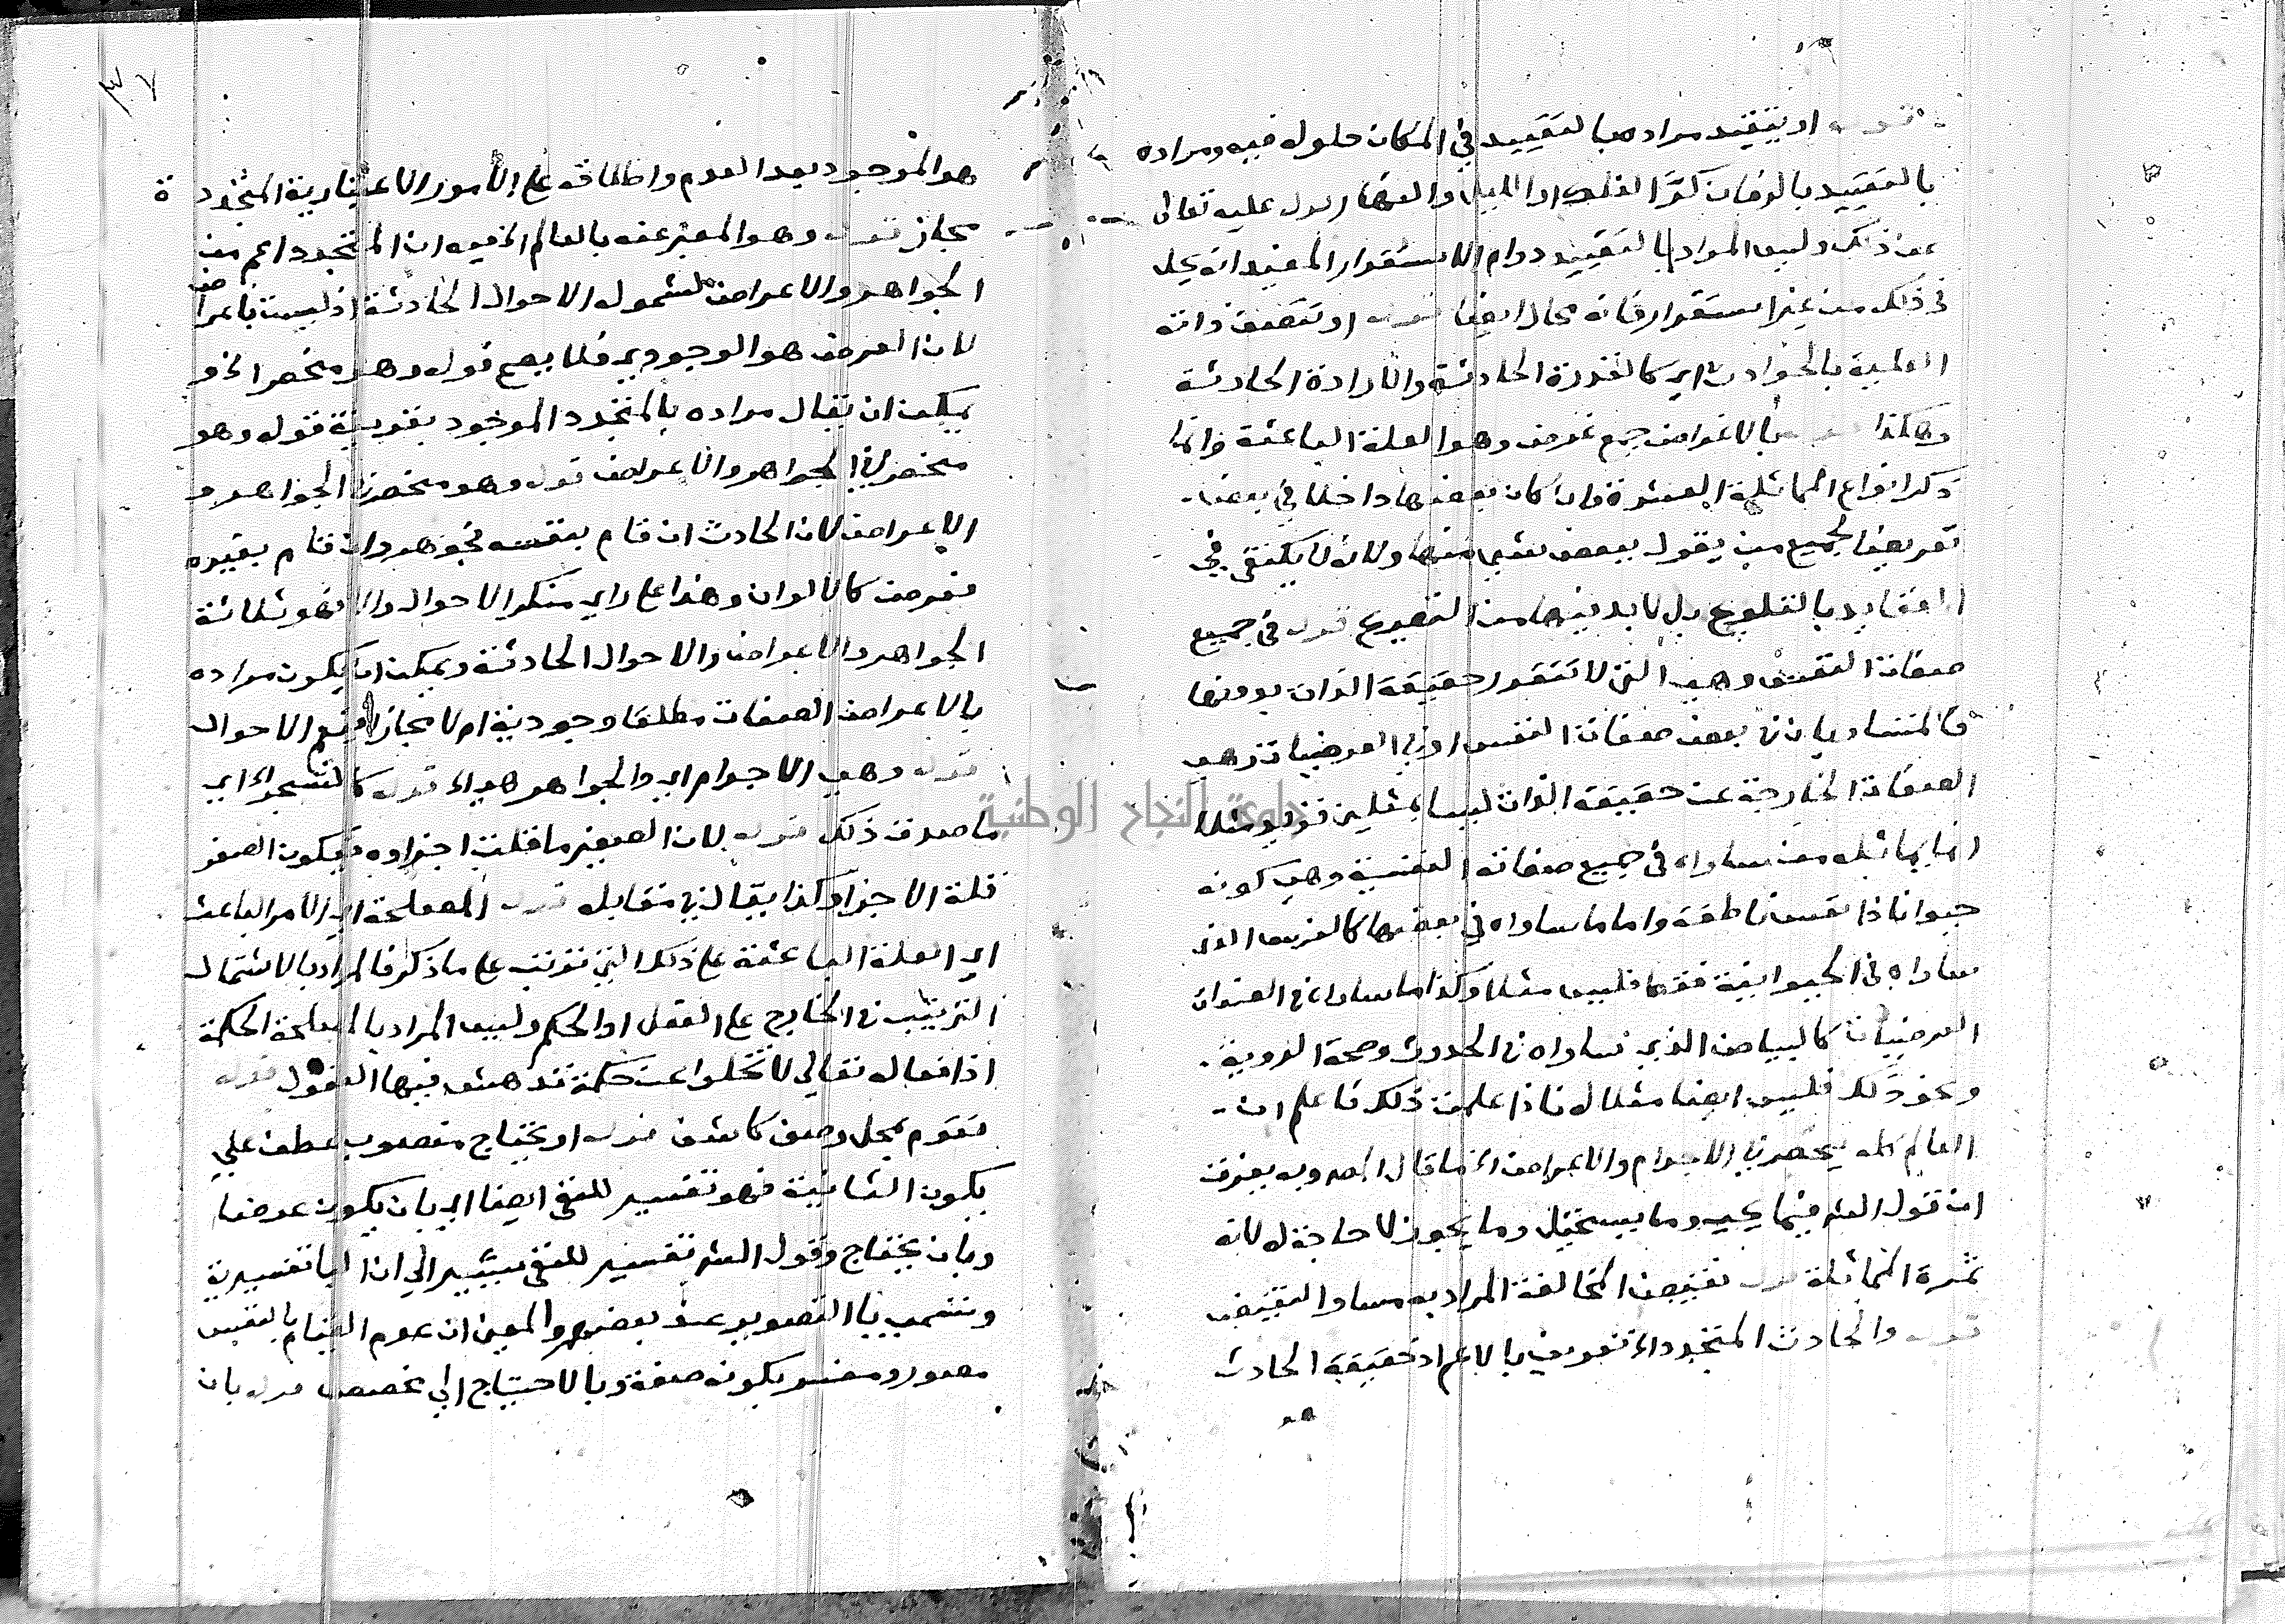 قوله او يتقيد مراده بالتقييد في المكان حلوله فيه ومراده
بالتقييد بالزمان كرّ الفلك او الليل والنهار يدل عليه تعالى
عن ذلك وليس المراد بالتقييد دوام الاستقرار المفيد انه يحل
في ذلك من غير استقرار فانه محال ايضا قوله او تتصف ذاته
العلية بالحوادث اي كالقدرة الحادثة والارادة الحادثة
وهكذا قوله بالاغراض جمع غرض وهو العلة الباعثة وانما
ذكر انواع المماثلة العشرة وان كان بعضها داخلا في بعض
تعريضا لجميع من يقول ببعض شي منها ولانه لا يكتفى في
العقايد بالتلويح بل لا بد فيها من التصريح قوله في جميع
صفات النفس وهي التي لا تتقرر حقيقة الذات بدونها
فالمتساويان في بعض صفات النفس او في العرضيات وهي
الصفات الخارجة عن حقيقة الذات ليسا بمثلين فزيد مثلا
انما يماثله من ساواه في جميع صفاته النفسية وهي كونه
حيوانا ذا نفس ناطقة واما ما ساواه في بعضها كالفرس الذي
ساواه في الحيوانية فقط فليس مثلا وكذا ما ساواه في الصفات
العرضيات كالبياض الذي ساواه في الحدوث وصحة الروية
ونحو ذلك فليس ايضا مثلا له فاذا علمت ذلك فاعلم ان
العالم كله منحصر في الاجرام والاعراض الخ ما قال المص وبه يعرف
ان قول الش فيما يجب وما يستحيل وما يجوز لا حاجة له لانه
ثمرة المماثلة قوله نقيض المخالفة المراد به مساو النقيض
قوله والحادث المتجدد الخ تعريف بالاعم اذ حقيقة الحادث
هو
٣٧
هو الموجود بعد العدم واطلاقه على الأمور الاعتبارية المتجددة
مجاز قوله وهو المعبر عنه بالعالم الخ فيه ان المتجدد اعم من
الجواهر والاعراض لشموله الاحوال الحادثة اذ ليست باعراض
لان العرض هو الوجودي فلا يصح قوله وهو منحصر الخ و
يمكن ان يقال مراده بالمتجدد الموجود بقرينة قوله وهو
منحصر في الجواهر والاعراض قوله وهو منحصر في الجواهر و
الاعراض لان الحادث ان قام بنفسه فجوهر وان قام بغيره
فعرض كالالوان وهذا على راي منكر الاحوال والا فهو ثلاثة
الجواهر والاعراض والاحوال الحادثة ويمكن ان يكون مراده
بالاعراض الصفات مطلقا وجودية ام لا مجازا فتعم الاحوال
قوله وهي الاجرام اي والجواهر هي الخ قوله كالشجر اي
ما صدق ذلك قوله لان الصغير ما قلت اجزاوه فيكون الصغر
قلة الاجزا وكذا يقال في مقابله قوله المصلحة اي الامر الباعث
اي العلة الباعثة على ذلك التي ترتبت على ما ذكر فالمراد بالاشتمال
الترتيب في الخارج على الفعل او الحكم وليس المراد بالمصلحة الحكمة
اذ افعاله تعالى لا تخلوا عن حكمة تدهش فيها العقول قوله
يقوم بمحل وصف كاشف قوله او يحتاج منصوب عطف على
يكون الثانية فهو تفسير للنفي ايضا اي بان يكون عرضا
وبان يحتاج وقول الش تفسير للنفي يشير الى ان البا تفسيرية
وتسمى باا التصوير عند بعضهم والمعنى ان عدم القيام بالنفس
مصور ومفسر بكونه صفة وبالاحتياج الى مخصص قوله بان
جامعة النجاح الوطنية